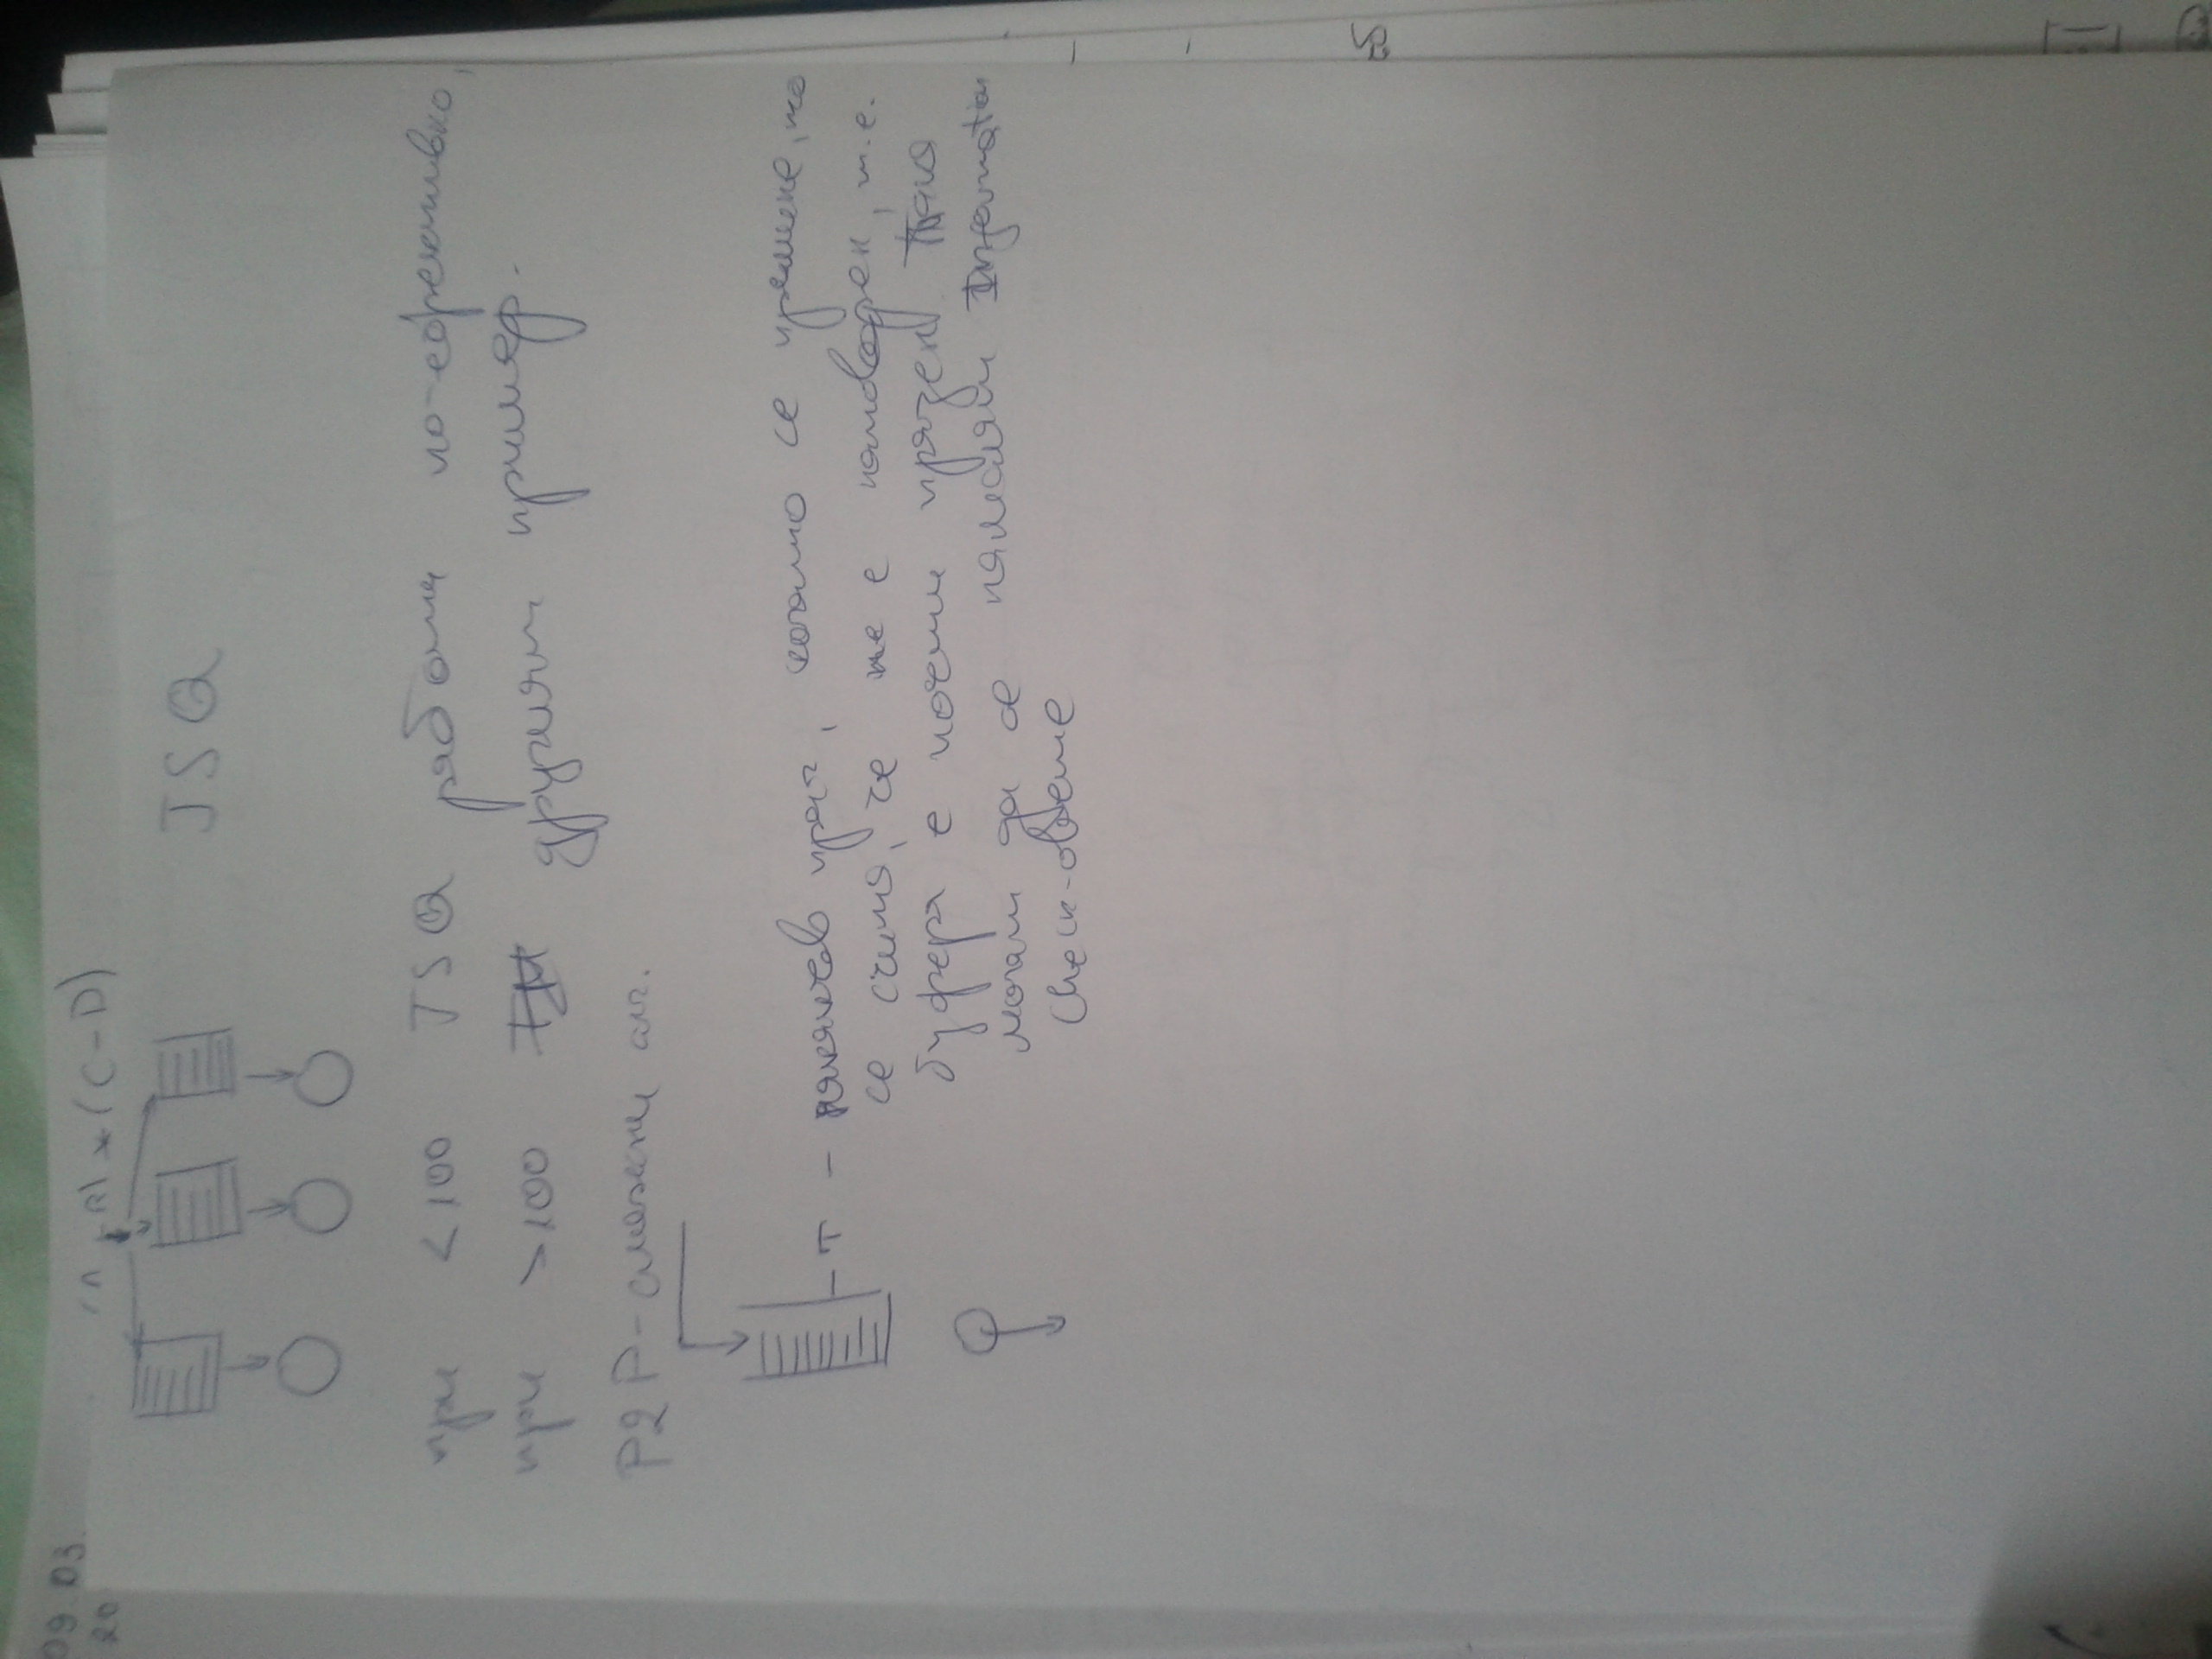 09.03.
20
* (C-D)
JSQ
при < 100 JSQ работи по-ефективно,
при > 100 другият пример.
P2P - сложни алг.
T - някакъв праг, когато се премине, то
се счита, че е натоварен, т.е.
буфера е почти празен. Така
могат да се намалят Information
Check-овете